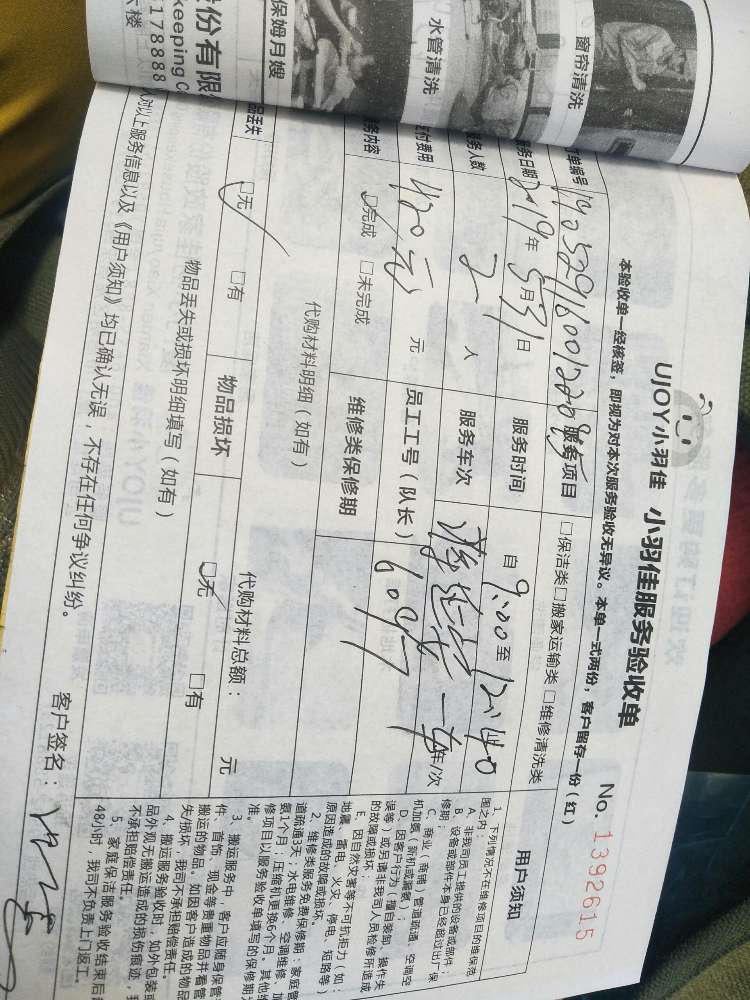 窗帘清洗
水管清洗
保姆月嫂
178888
UJOY小羽佳 小羽佳服务验收单
No. 1392615
本验收单一经核签，即视为对本次服务验收无异议。本单一式两份，客户留存一份（红）
服务项目 □保洁类□搬家运输类 □维修清洗类
2019年5月31日 服务时间 自9:00至12:40
2人 服务车次 年/次
420元 元 员工工号（队长） 6097
□完成 □未完成 维修类保修期
代购材料明细（如有） 代购材料总额： 元
□无 □有 物品损坏 □无 □有
物品丢失或损坏明细填写（如有）
以上服务信息以及《用户须知》均已确认无误，不存在任何争议纠纷。
客户签名：
用户须知
1、下列情况不在维修项目的维保范
围之内：
A、非我司员工提供的设备或部件
B、设备或部件本身已经超过出厂保
修期；
C、商业（商铺）管道疏通，空调空
机加氟（新机或漏氟）；
D、因客户行为（擅自装卸、操作失
误等）或另请非我司人员检修所造成
的故障或损坏；
E、因自然灾害等不可抗拒力（如：
地震、雷电、火灾、停电、短路等）
原因造成的故障或损坏。
2、维修类服务免费保修期：家庭管
道疏通3天；水电维修、空调维修、加
氨1个月；压缩机更换6个月。其他维
修项目以服务验收单填写的保修期为
准。
3、搬运服务中，客户应随身保管
件、首饰、现金等贵重物品并看管
搬运的物品。如因客户造成的物品
失/损坏，我司不承担赔偿责任。
4、搬运服务验收时，如外包装或
品外观无搬运造成的损伤痕迹，我
不承担赔偿责任。
5、家庭保洁服务验收结束后
48小时，我司不负责上门返工。